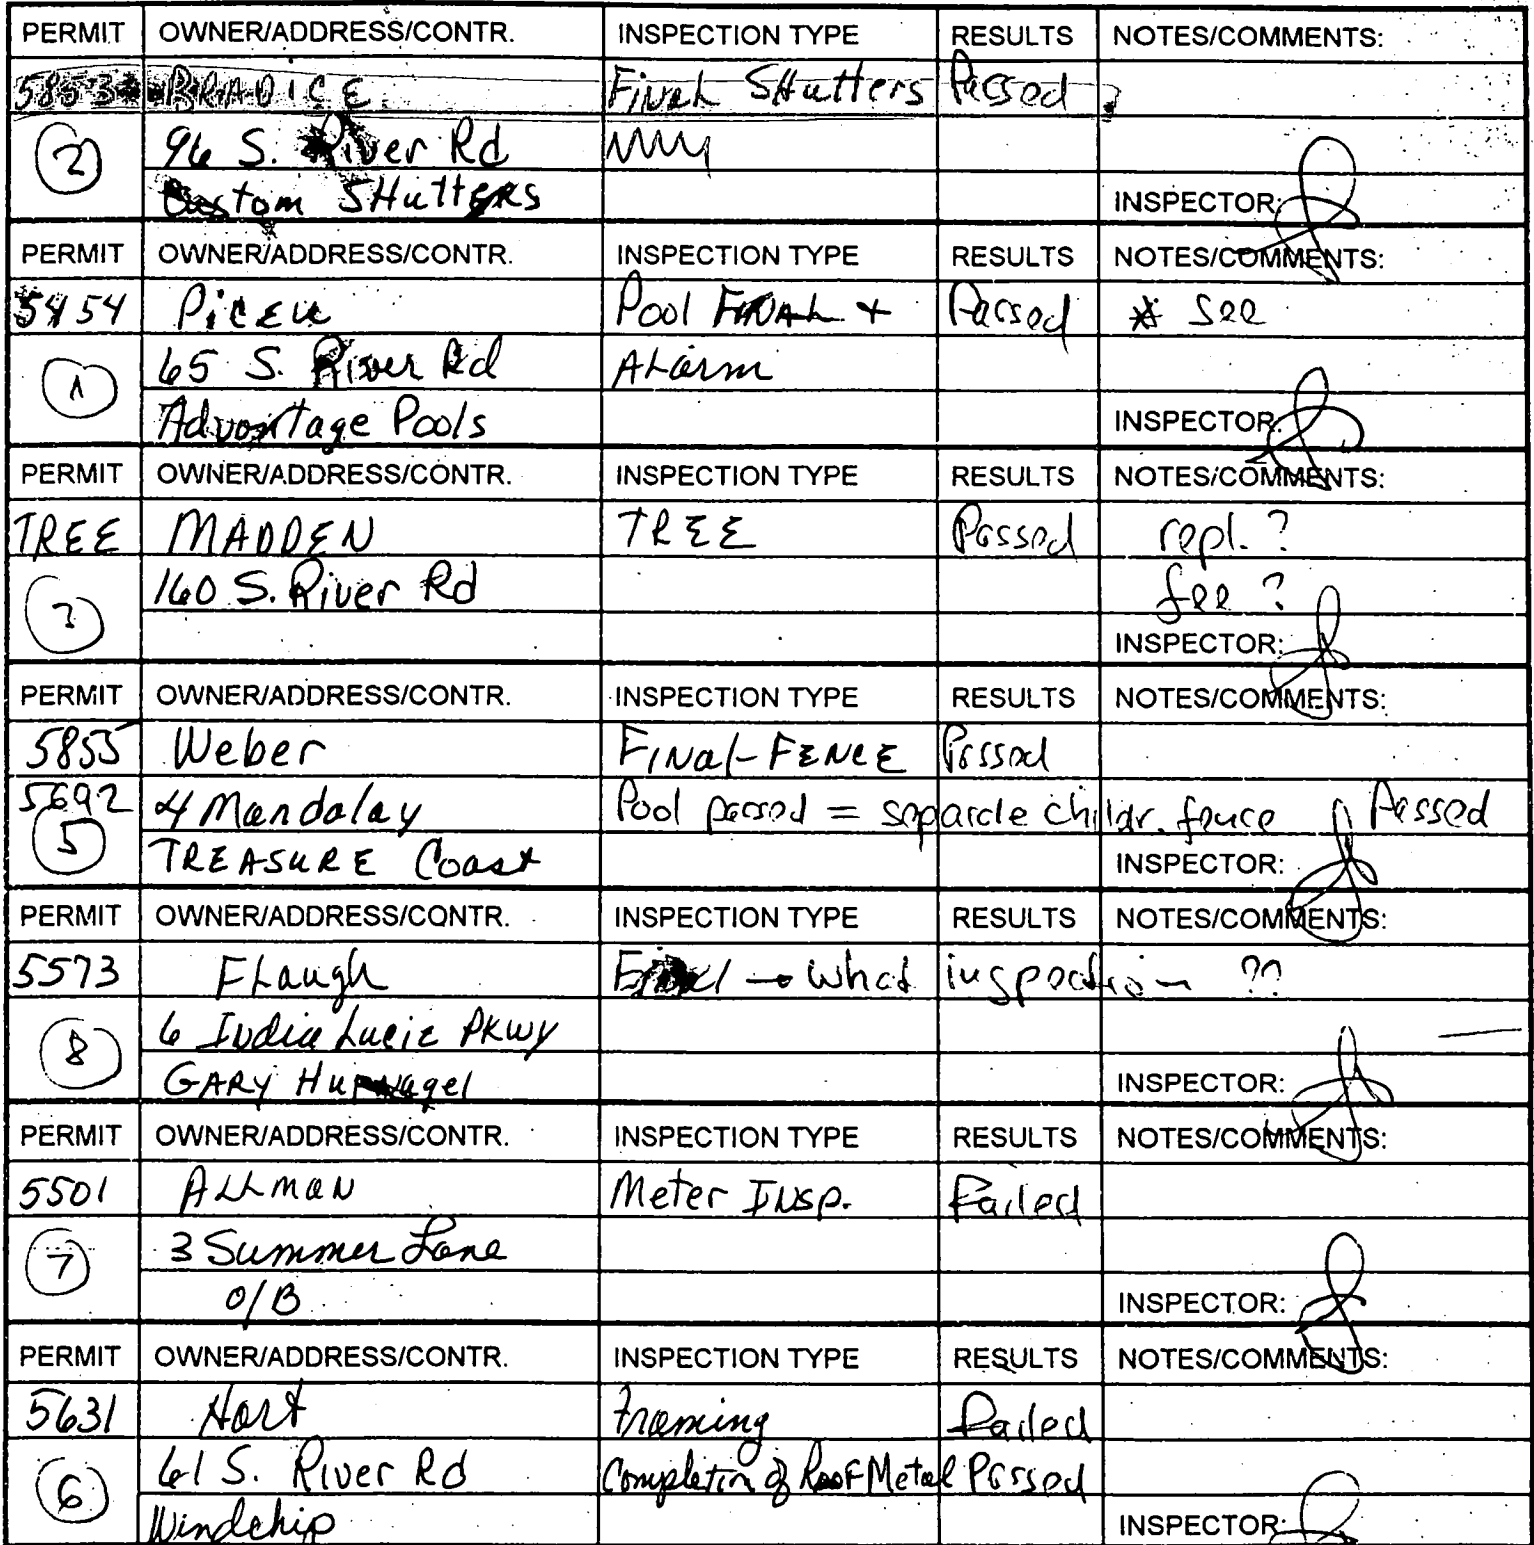 PERMIT OWNER/ADDRESS/CONTR. INSPECTION TYPE RESULTS NOTES/COMMENTS:
5853 BRADICE Final SHutters Passed
2 96 S. River Rd
Custom SHuttERS INSPECTOR:
PERMIT OWNER/ADDRESS/CONTR. INSPECTION TYPE RESULTS NOTES/COMMENTS:
5454 Piceu Pool FINAL + Passed * see
1 65 S. River Rd ALarm
Advantage Pools INSPECTOR:
PERMIT OWNER/ADDRESS/CONTR. INSPECTION TYPE RESULTS NOTES/COMMENTS:
TREE MADDEN TREE Passed repl. ?
160 S. River Rd fee ?
INSPECTOR:
PERMIT OWNER/ADDRESS/CONTR. INSPECTION TYPE RESULTS NOTES/COMMENTS:
5855 Weber FINal-FENCE Passed
5692 4 Mandalay Pool passed = separate childr. fence Passed
5 TREASURE Coast INSPECTOR:
PERMIT OWNER/ADDRESS/CONTR. INSPECTION TYPE RESULTS NOTES/COMMENTS:
5573 FLaugh Final → what inspection ??
8 6 India Lucie PKWY
GARY Hufnagel INSPECTOR:
PERMIT OWNER/ADDRESS/CONTR. INSPECTION TYPE RESULTS NOTES/COMMENTS:
5501 ALLmaN Meter INSP. Failed
7 3 Summer Lane
O/B INSPECTOR:
PERMIT OWNER/ADDRESS/CONTR. INSPECTION TYPE RESULTS NOTES/COMMENTS:
5631 Hart Framing Failed
6 61 S. River Rd Completion of Roof Metal Passed
Windchip INSPECTOR: